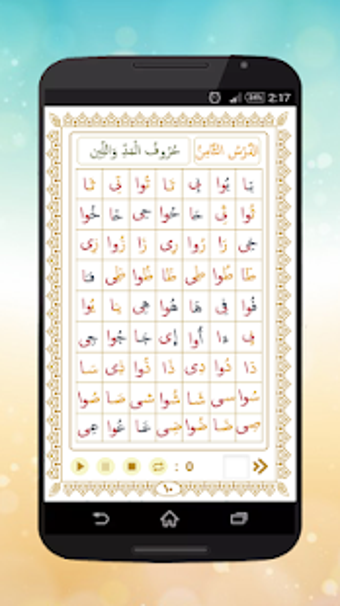 2:17
الدَّرْسُ الثَّامِنُ حُرُوفُ الْمَدِّ وَاللِّيْنِ
بَا بُوا بِى تَا تُوا تِى ثَا
ثُوا ثِى حَا حُوا حِى خَا خُوا
خِى رَا رُوا رِى زَا زُوا زِى
طَا طُوا طِى ظَا ظُوا ظِى فَا
فُوا فِى هَا هُوا هِى يَا يُوا
يِى ءَا أُوا إِى جَا جُوا جِى
دَا دُوا دِى ذَا ذُوا ذِى سَا
سُوا سِى شَا شُوا شِى صَا صُوا
صِى ضَا ضُوا ضِى عَا عُوا عِى
: 0
١٠